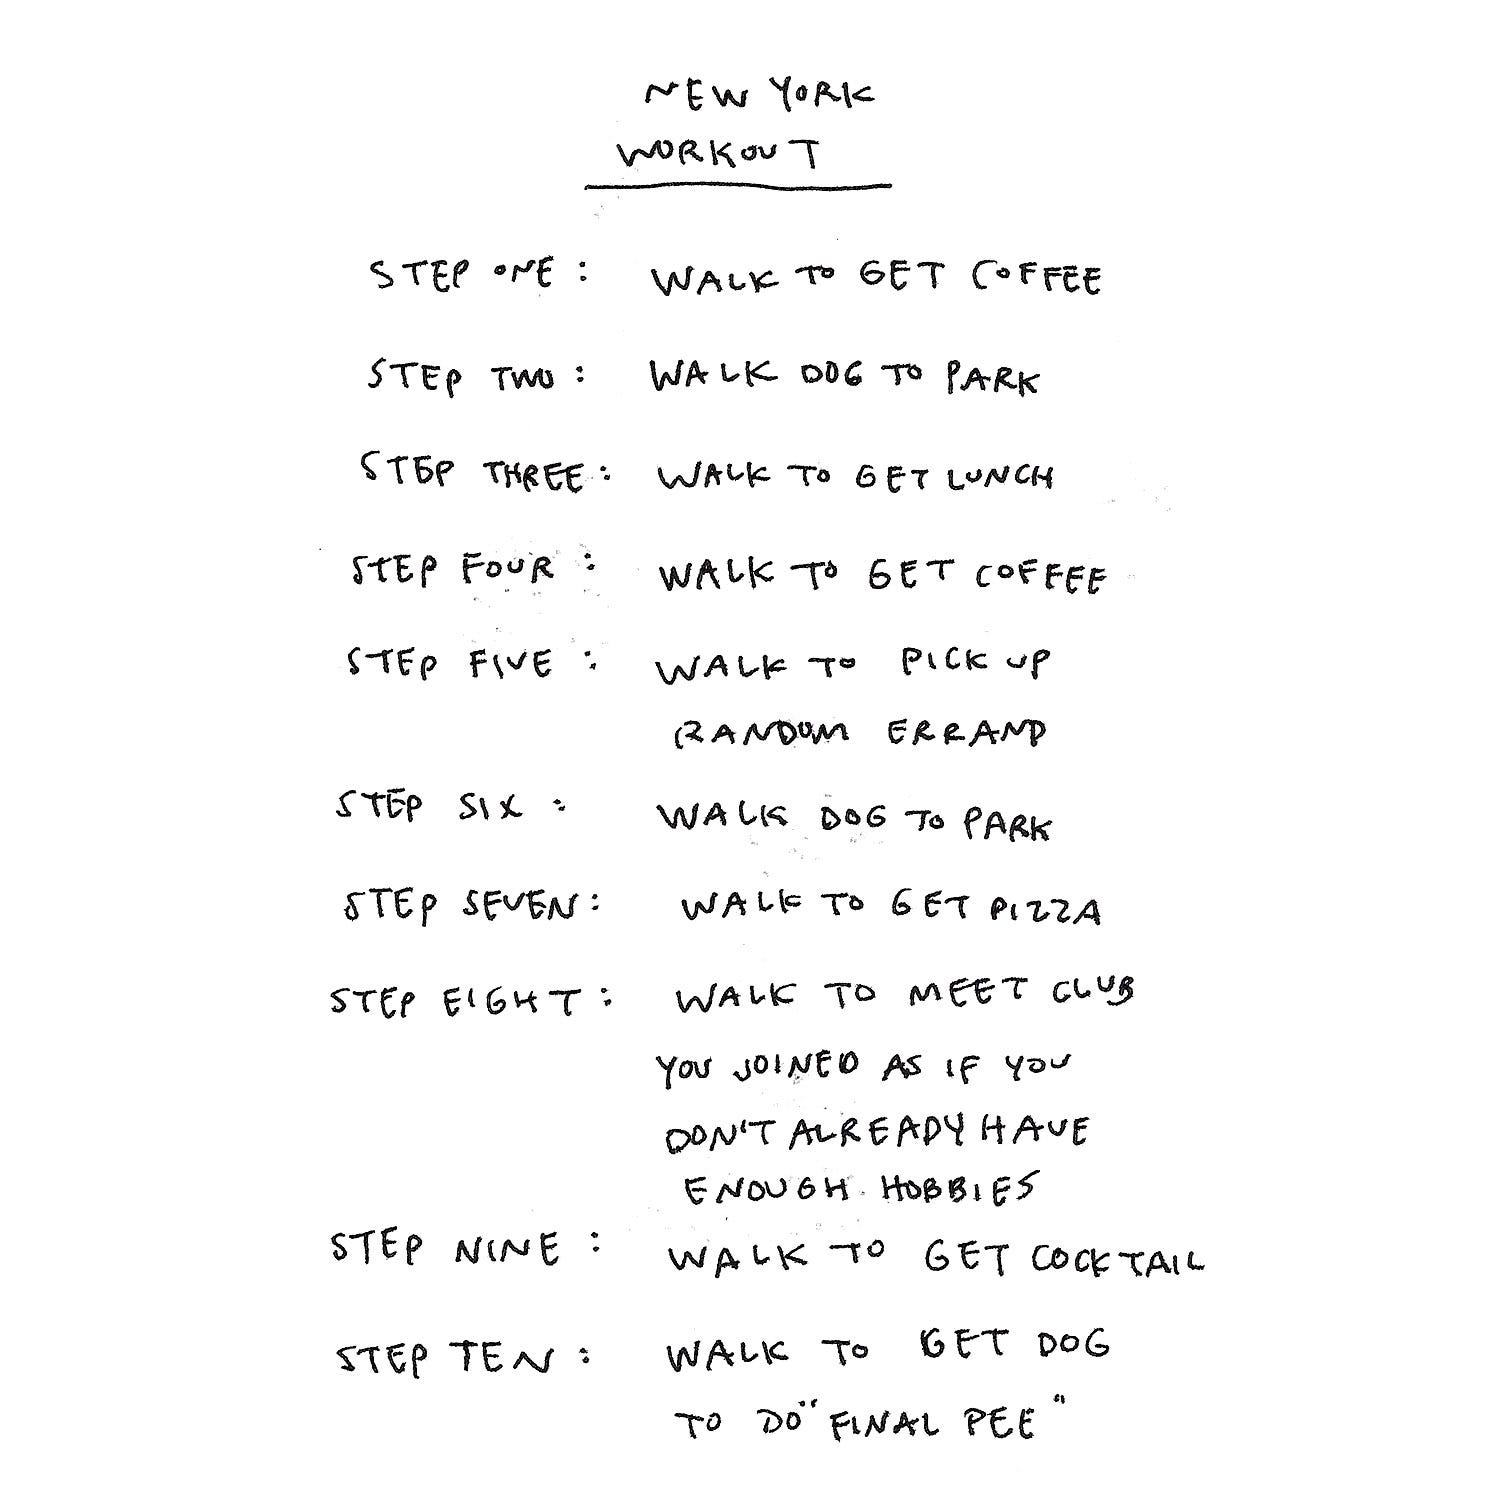 NEW YORK
WORKOUT
STEP ONE: WALK TO GET COFFEE
STEP TWO: WALK DOG TO PARK
STEP THREE: WALK TO GET LUNCH
STEP FOUR: WALK TO GET COFFEE
STEP FIVE: WALK TO PICK UP
RANDOM ERRAND
STEP SIX: WALK DOG TO PARK
STEP SEVEN: WALK TO GET PIZZA
STEP EIGHT: WALK TO MEET CLUB
YOU JOINED AS IF YOU
DON'T ALREADY HAVE
ENOUGH HOBBIES
STEP NINE: WALK TO GET COCKTAIL
STEP TEN: WALK TO GET DOG
TO DO "FINAL PEE"